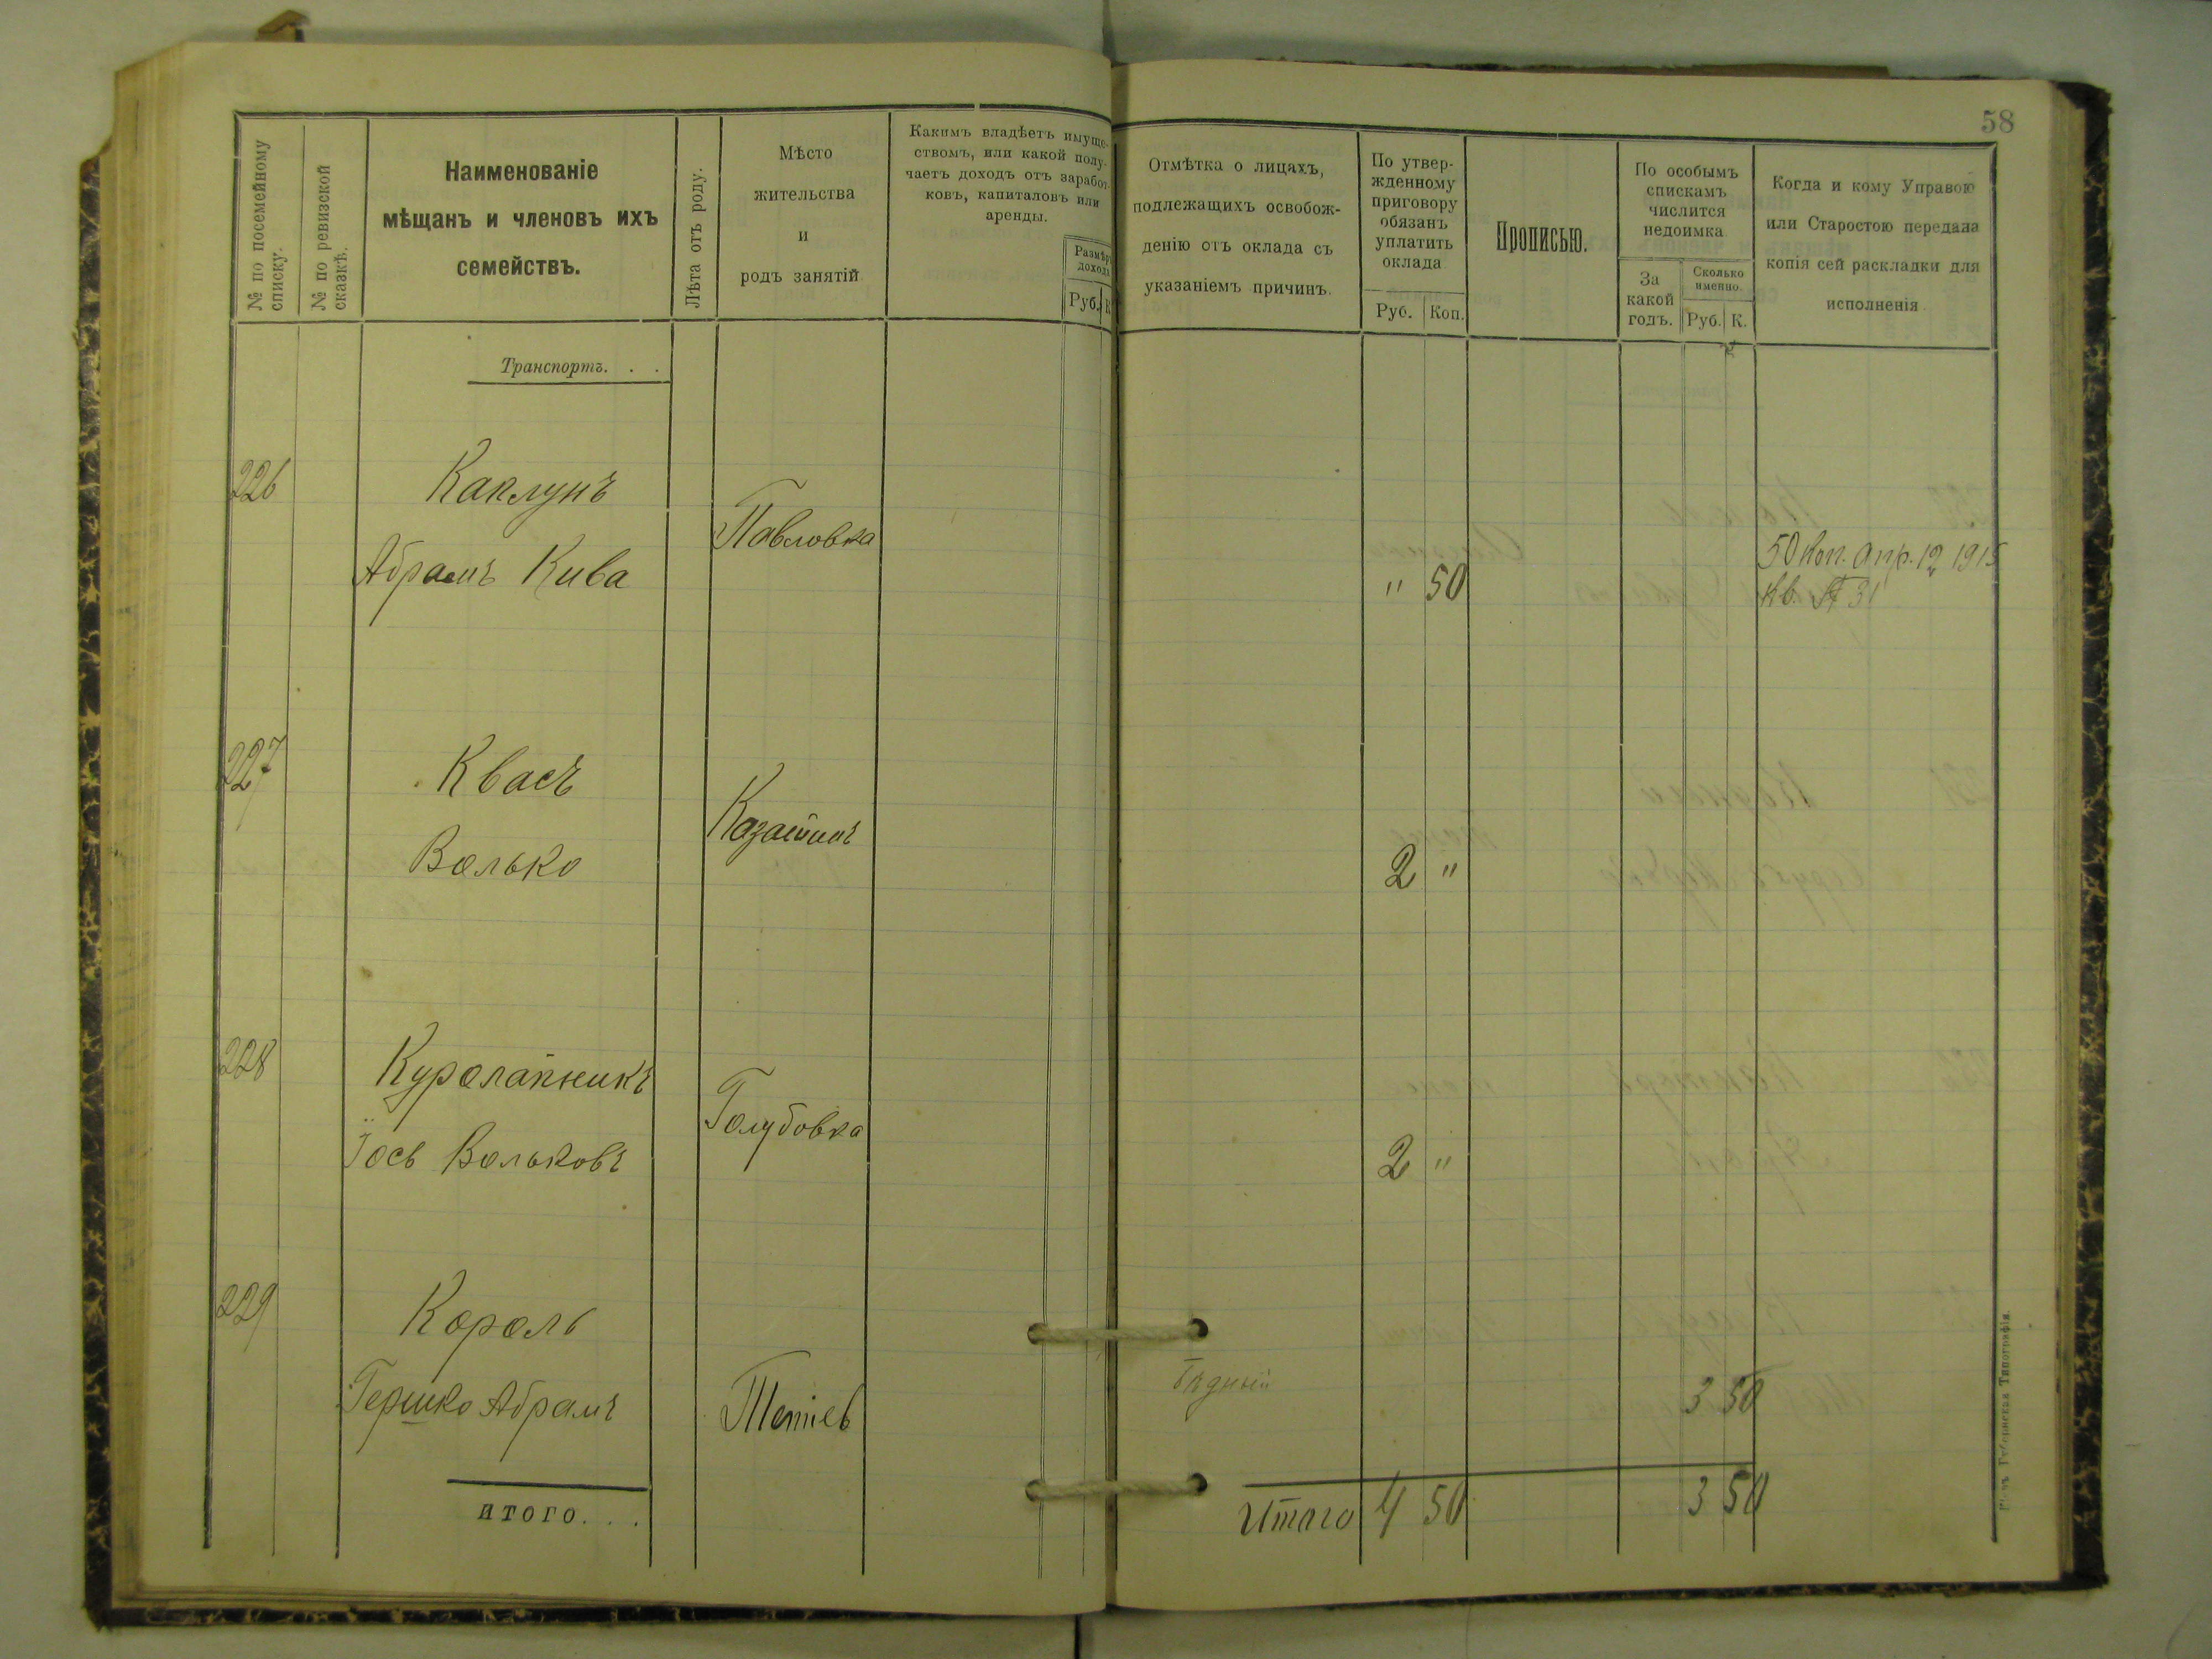 58
№ по посемейному
списку.
№ по ревизской
сказкѣ.
Наименованіе
мѣщанъ и членовъ ихъ
семействъ.
Лѣта отъ роду.
Мѣсто
жительства
и
родъ занятій
Какимъ владѣетъ имуще-
ствомъ, или какой полу-
чаетъ доходъ отъ заработ-
ковъ, капиталовъ или
аренды.
Размѣръ
дохода
Руб. К.
Отмѣтка о лицахъ,
подлежащихъ освобож-
денію отъ оклада съ
указаніемъ причинъ.
По утвер-
жденному
приговору
обязанъ
уплатить
оклада
Руб. Коп.
Прописью.
По особымъ
спискамъ
числится
недоимка
За
какой
годъ.
Сколько
именно.
Руб. К.
Когда и кому Управою
или Старостою передана
копія сей раскладки для
исполненія
Транспортъ. . .
226 Каплунъ
Абрамъ Кива Павловка " 50
50 коп. Апр. 12 1915
кв. № 31
227 Квасъ
Волько Казатинъ 2 "
228 Куролапникъ
Іось Вольковъ Голубовка 2 "
229 Король
Гершко Абрамъ Тетіев бѣдный 3 50
ИТОГО. . .
Итого 4 50 3 50